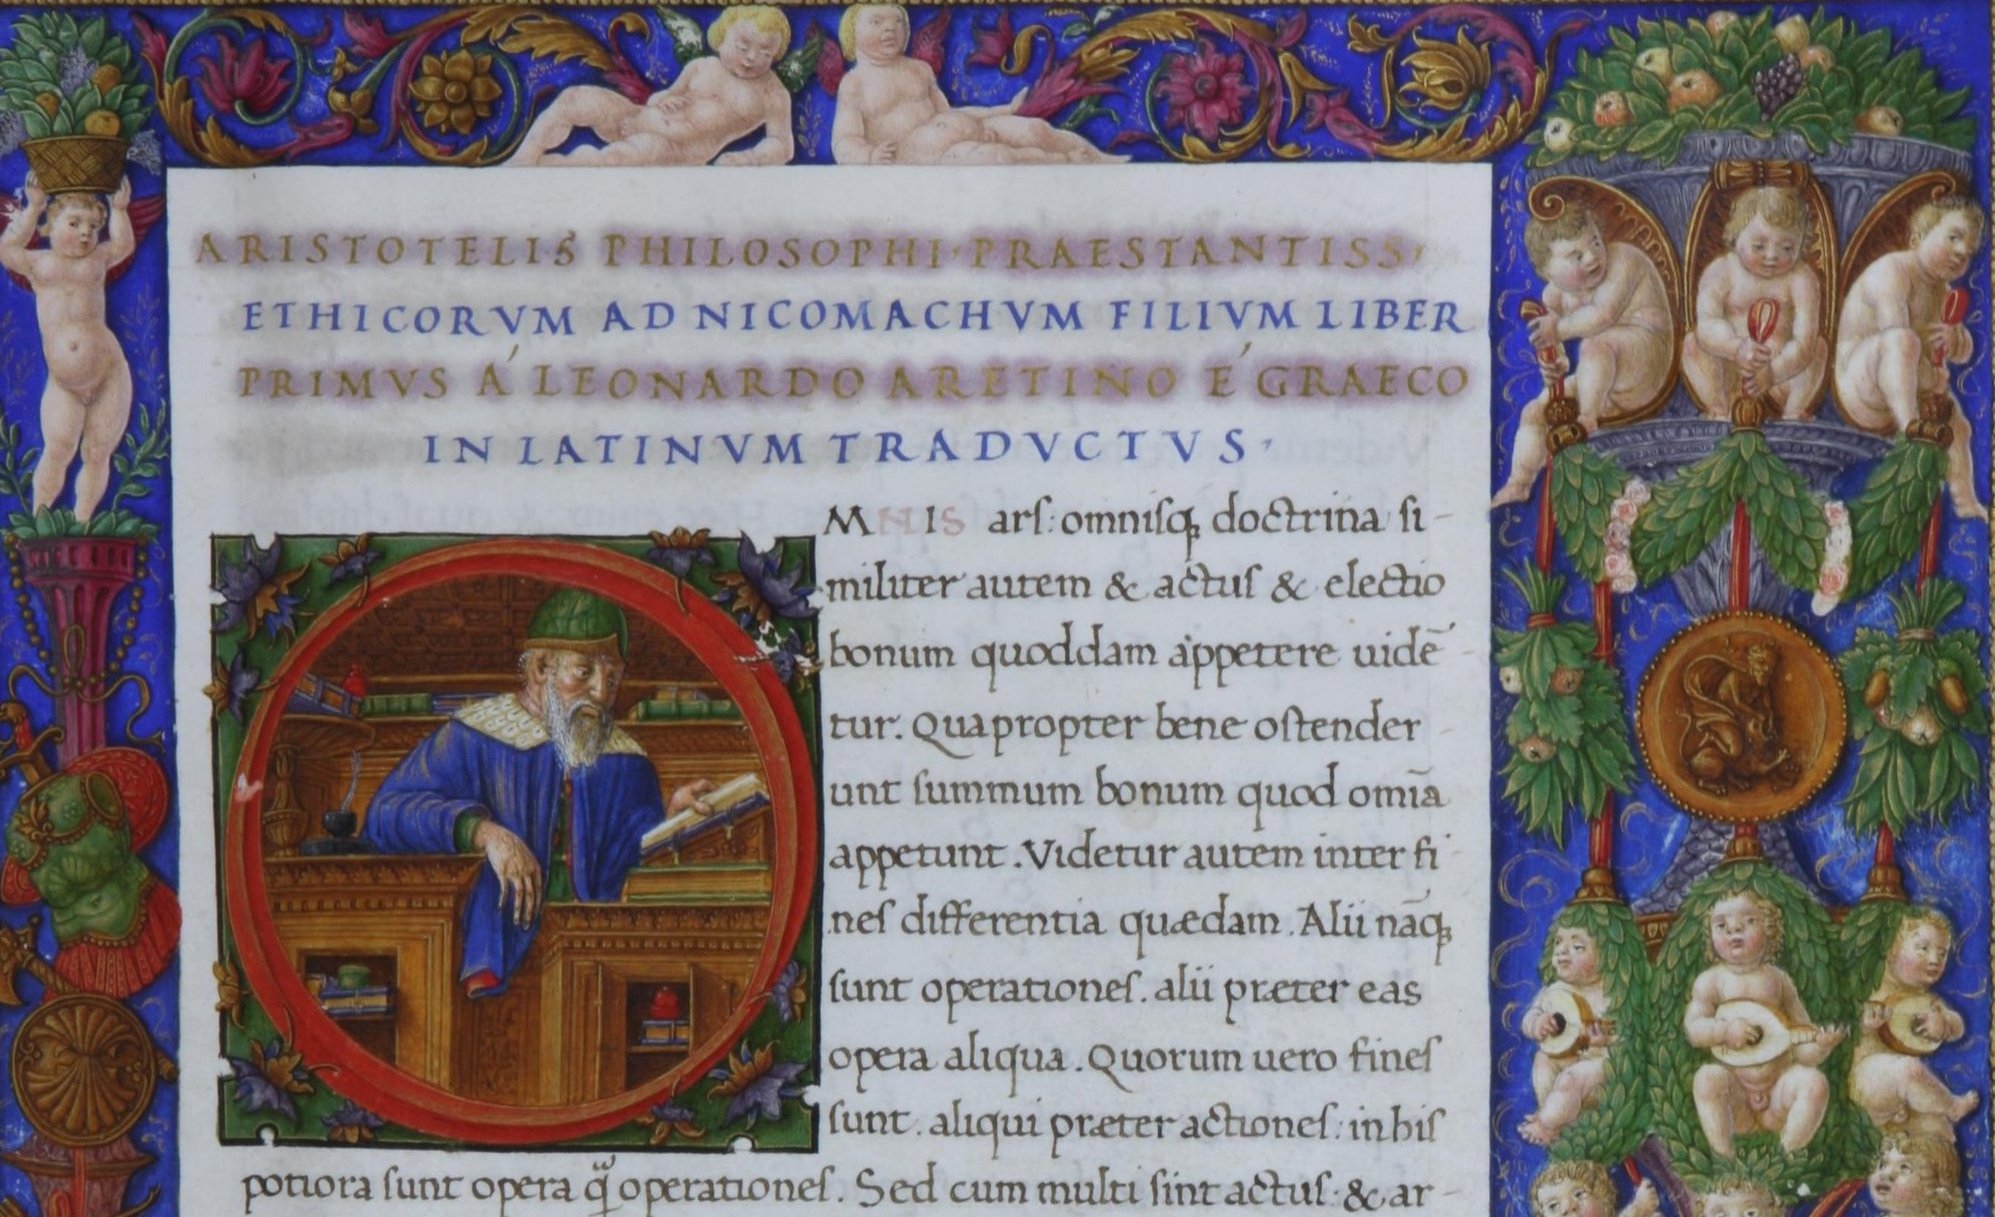 ARISTOTELIS PHILOSOPHI·PRAESTANTISS·
ETHICORVM AD NICOMACHVM FILIVM LIBER
PRIMVS Á LEONARDO ARETINO É GRAECO
IN LATINVM TRADVCTVS·
MNIS arſ: omniſqꝫ doctrina ſi-
militer autem & actuſ & electio
bonum quoddam appetere uidē
tur. Quapropter bene oſtender
unt ſummum bonum quod omīa
appetunt. Videtur autem inter fi
neſ differentia quædam. Alii nāqꝫ
ſunt operationeſ. alii præter eas
opera aliqua. Quorum uero fineſ
ſunt. aliqui præter actioneſ: in hiſ
potiora ſunt opera qͣ̃ operationeſ. Sed cum multi ſint actuſ· & ar-